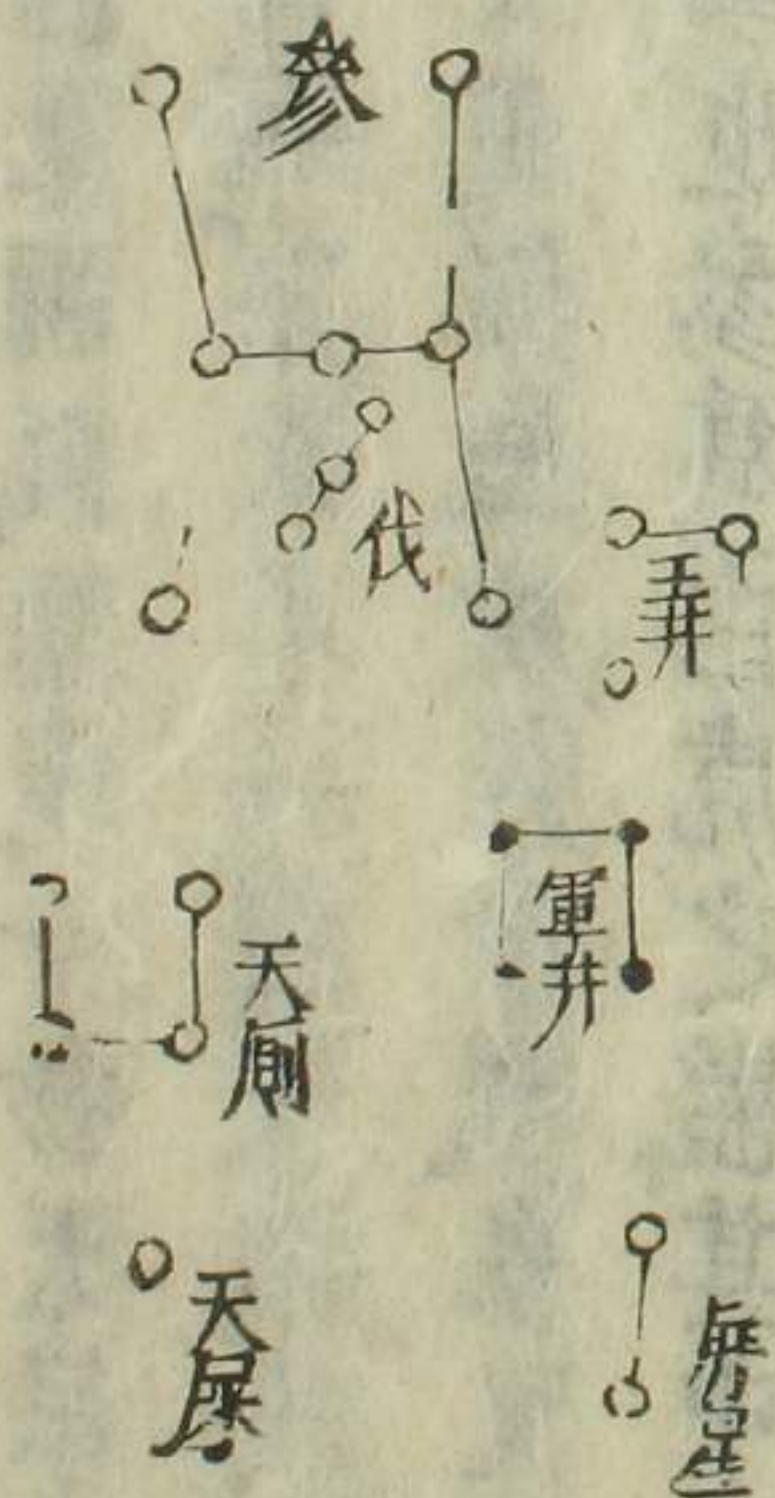 參
伐
玉井
軍井
天厠
天屎
屏星